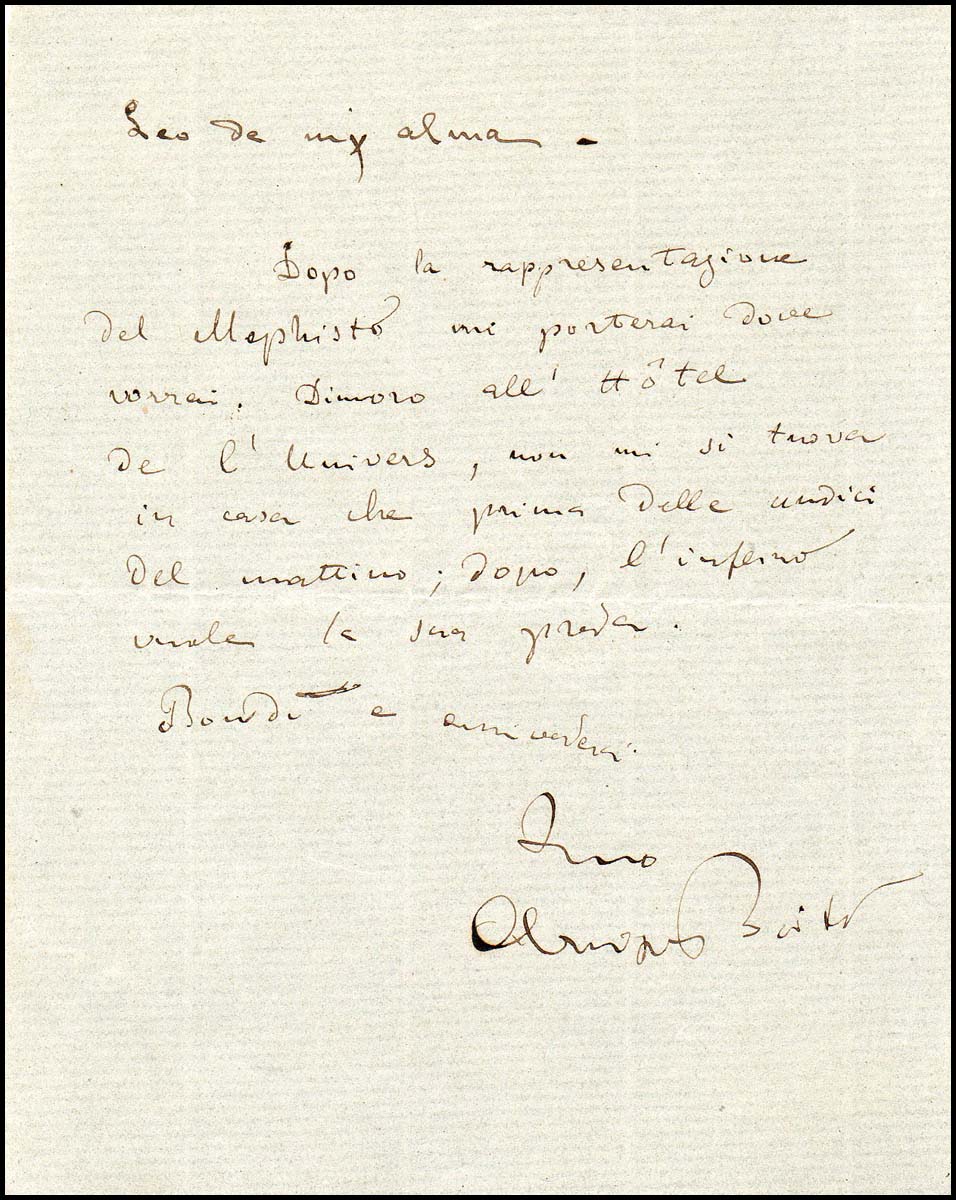 Leo de my alma -
Dopo la rappresentazione
del Mephisto mi porterai dove
vorrai. Dimoro all' Hôtel
de l'Univers, non mi si trova
in casa che prima delle undici
del mattino; dopo, l'inferno
vuole la sua preda.
Bondì e arrivederci.
Tuo
Arrigo Boito